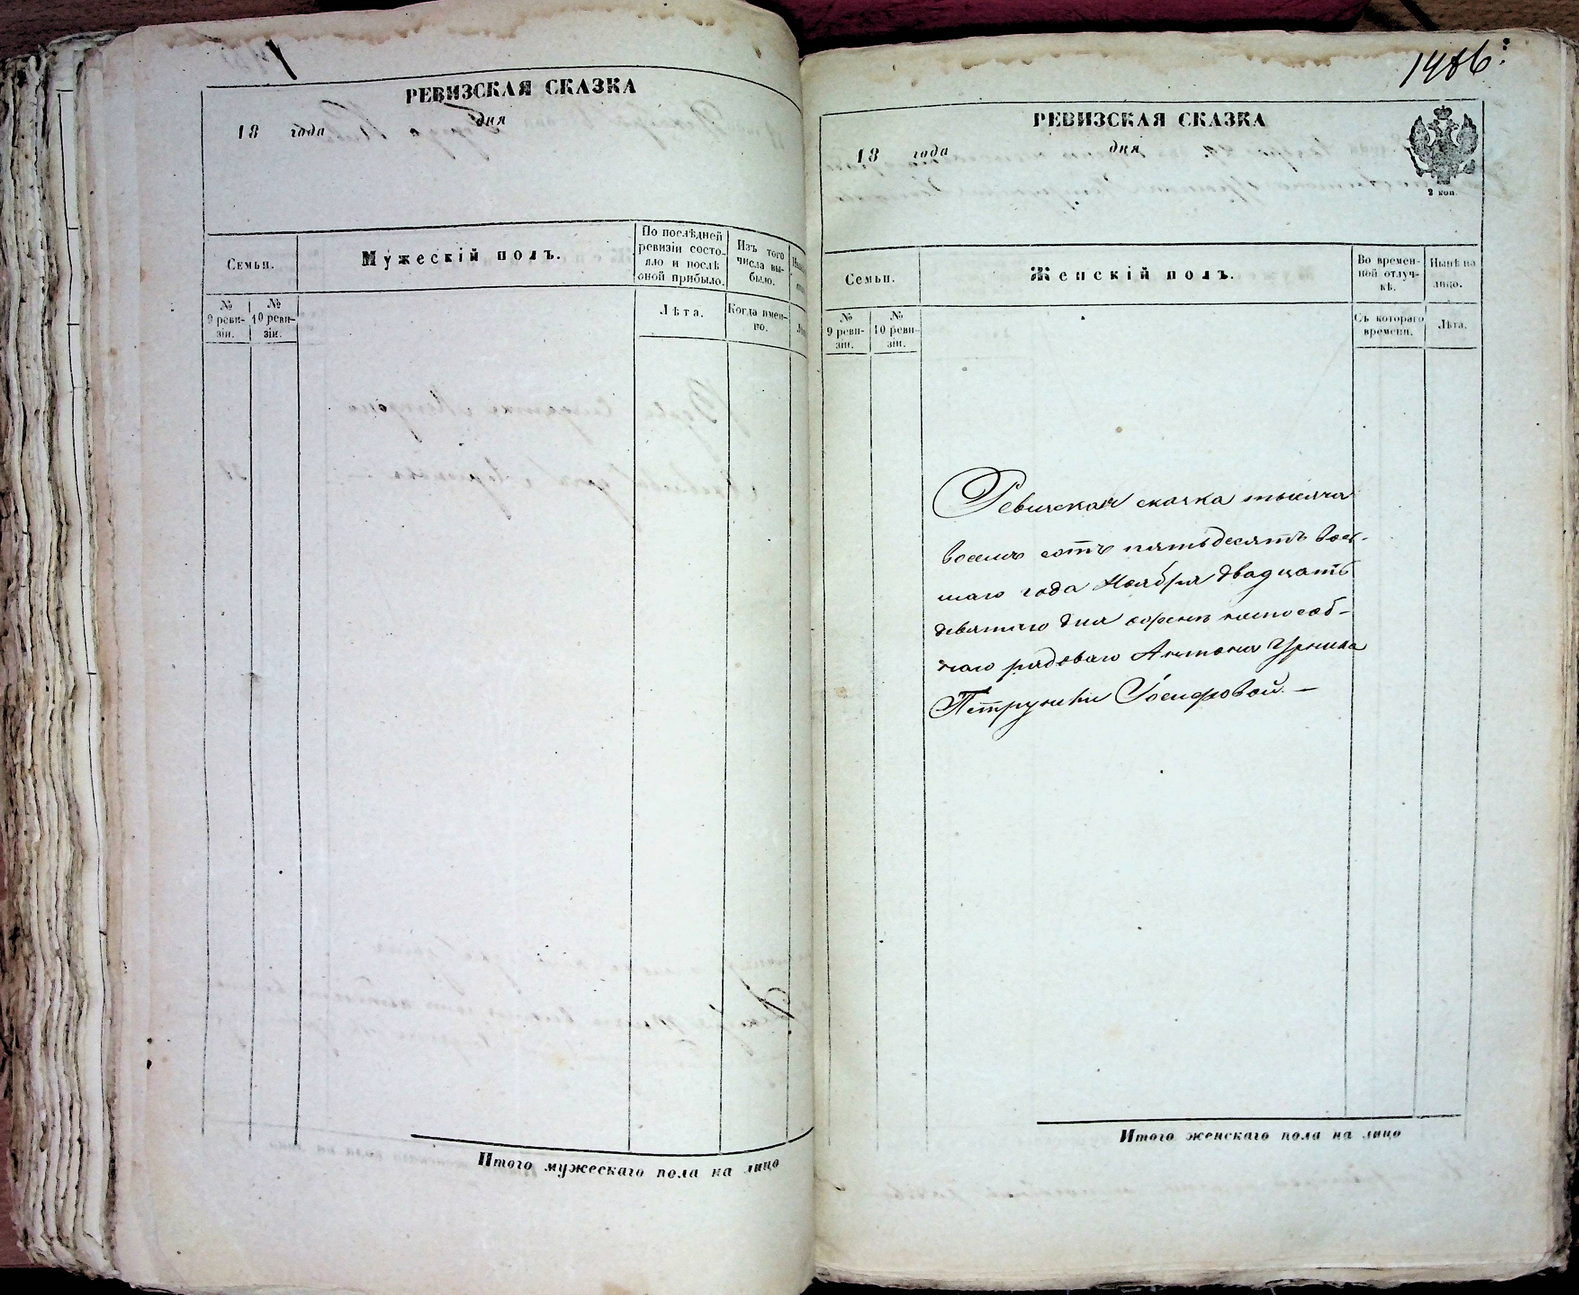 РЕВИЗСКАЯ СКАЗКА
18 года дня
Семьи.
Мужескій полъ.
По послѣдней
ревизіи состо-
яло и послѣ
оной прибыло.
Изъ того
числа вы-
было.
№
9 реви-
зіи.
№
10 реви-
зіи.
Лѣта.
Когда имен-
но.
Итого мужескаго пола на лицо
1486
РЕВИЗСКАЯ СКАЗКА
18 года дня
2 коп
Семьи.
Женскій полъ.
Во времен-
ной отлуч-
кѣ.
Нынѣ на
лицо.
№
9 реви-
зіи.
№
10 реви-
зіи.
Съ котораго
времени.
Лѣта.
Ревизская сказка тысяча
восемь сотъ пятьдесятъ вось-
маго года Ноября двадцать
девятаго дня неспособ-
наго рядоваго Антона
Петрунели Іосифовой. —
Итого женскаго пола на лицо